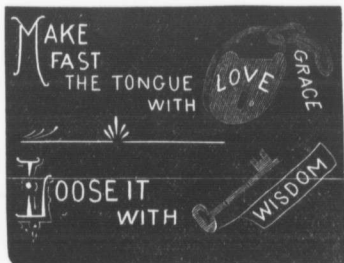 MAKE
FAST
THE TONGUE
WITH
LOVE
GRACE
LOOSE IT
WITH
WISDOM